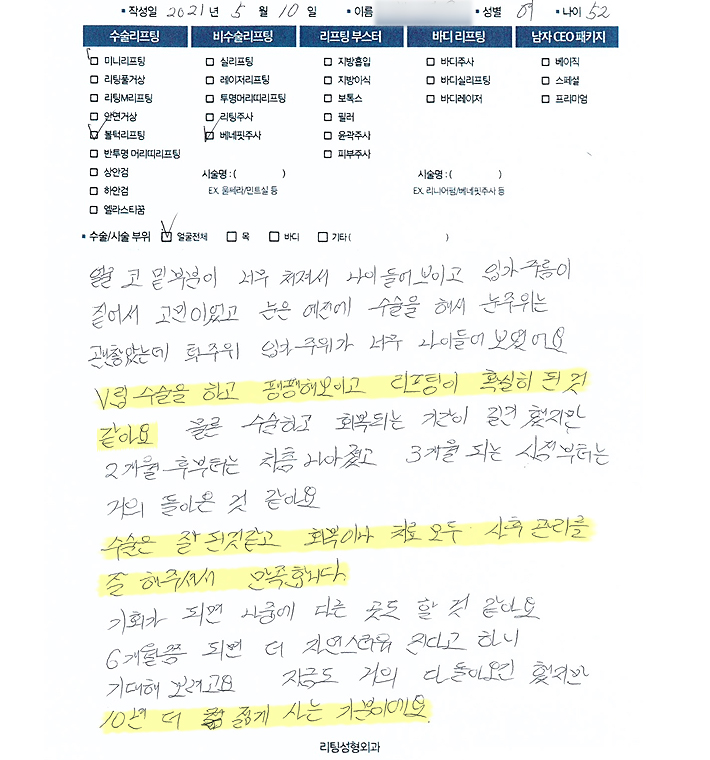 • 작성일 2021년 5월 10일 • 이름 • 성별 여 • 나이 52
수술리프팅 비수술리프팅 리프팅 부스터 바디 리프팅 남자 CEO 패키지
미니리프팅 실리프팅 지방흡입 바디주사 베이직
리팅풀거상 레이저리프팅 지방이식 바디실리프팅 스페셜
리팅M리프팅 투명머리띠리프팅 보톡스 바디레이저 프리미엄
안면거상 리팅주사 필러
볼턱리프팅 베네핏주사 윤곽주사
반투명 머리띠리프팅 피부주사
상안검 시술명 : ( ) 시술명 : ( )
하안검 EX. 울쎄라/민트실 등 EX. 리니어펌/베네핏주사 등
엘라스티꿈
• 수술/시술 부위 얼굴전체 목 바디 기타 ( )
얼굴 코 밑부분이 너무 쳐져서 나이들어보이고 입가주름이
깊어서 고민이었고 눈은 예전에 수술을 해서 눈주위는
괜찮았는데 볼주위 입가주위가 너무 나이들어 보였어요
V립 수술을 하고 팽팽해보이고 리프팅이 확실히 된 것
같아요 물론 수술하고 회복되는 기간이 길긴 했지만
2개월 후부터는 차츰 나아졌고 3개월 되는 시점부터는
거의 돌아온 것 같아요
수술은 잘 된것같고 회복이나 치료 모두 사후 관리를
잘 해주셔서 만족합니다.
기회가 되면 나중에 다른 곳도 할 것 같아요
6개월쯤 되면 더 자연스러워 진다고 하니
기대해 보려고요 지금도 거의 다 돌아오긴 했지만
10년 더 젊게 사는 기분이에요
리팅성형외과